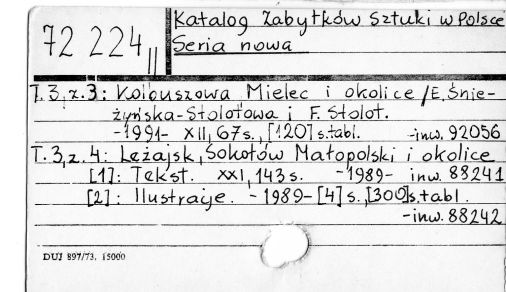 72 224 II
Katalog Zabytków Sztuki w Polsce
Seria nowa
T.3, z.3: Kolbuszowa Mielec i okolice / E. Śnie-
żyńska-Stolotowa i F. Stolot.
-1991- XII, 67 s., [120] s. tabl. -inw. 92056
T.3, z.4: Leżajsk, Sokołów Małopolski i okolice
[1]: Tekst. XXI, 143 s. -1989- inw. 88241
[2]: Ilustracje. -1989- [4] s., [300] s. tabl.
-inw. 88242
DUJ 897/73. 15000